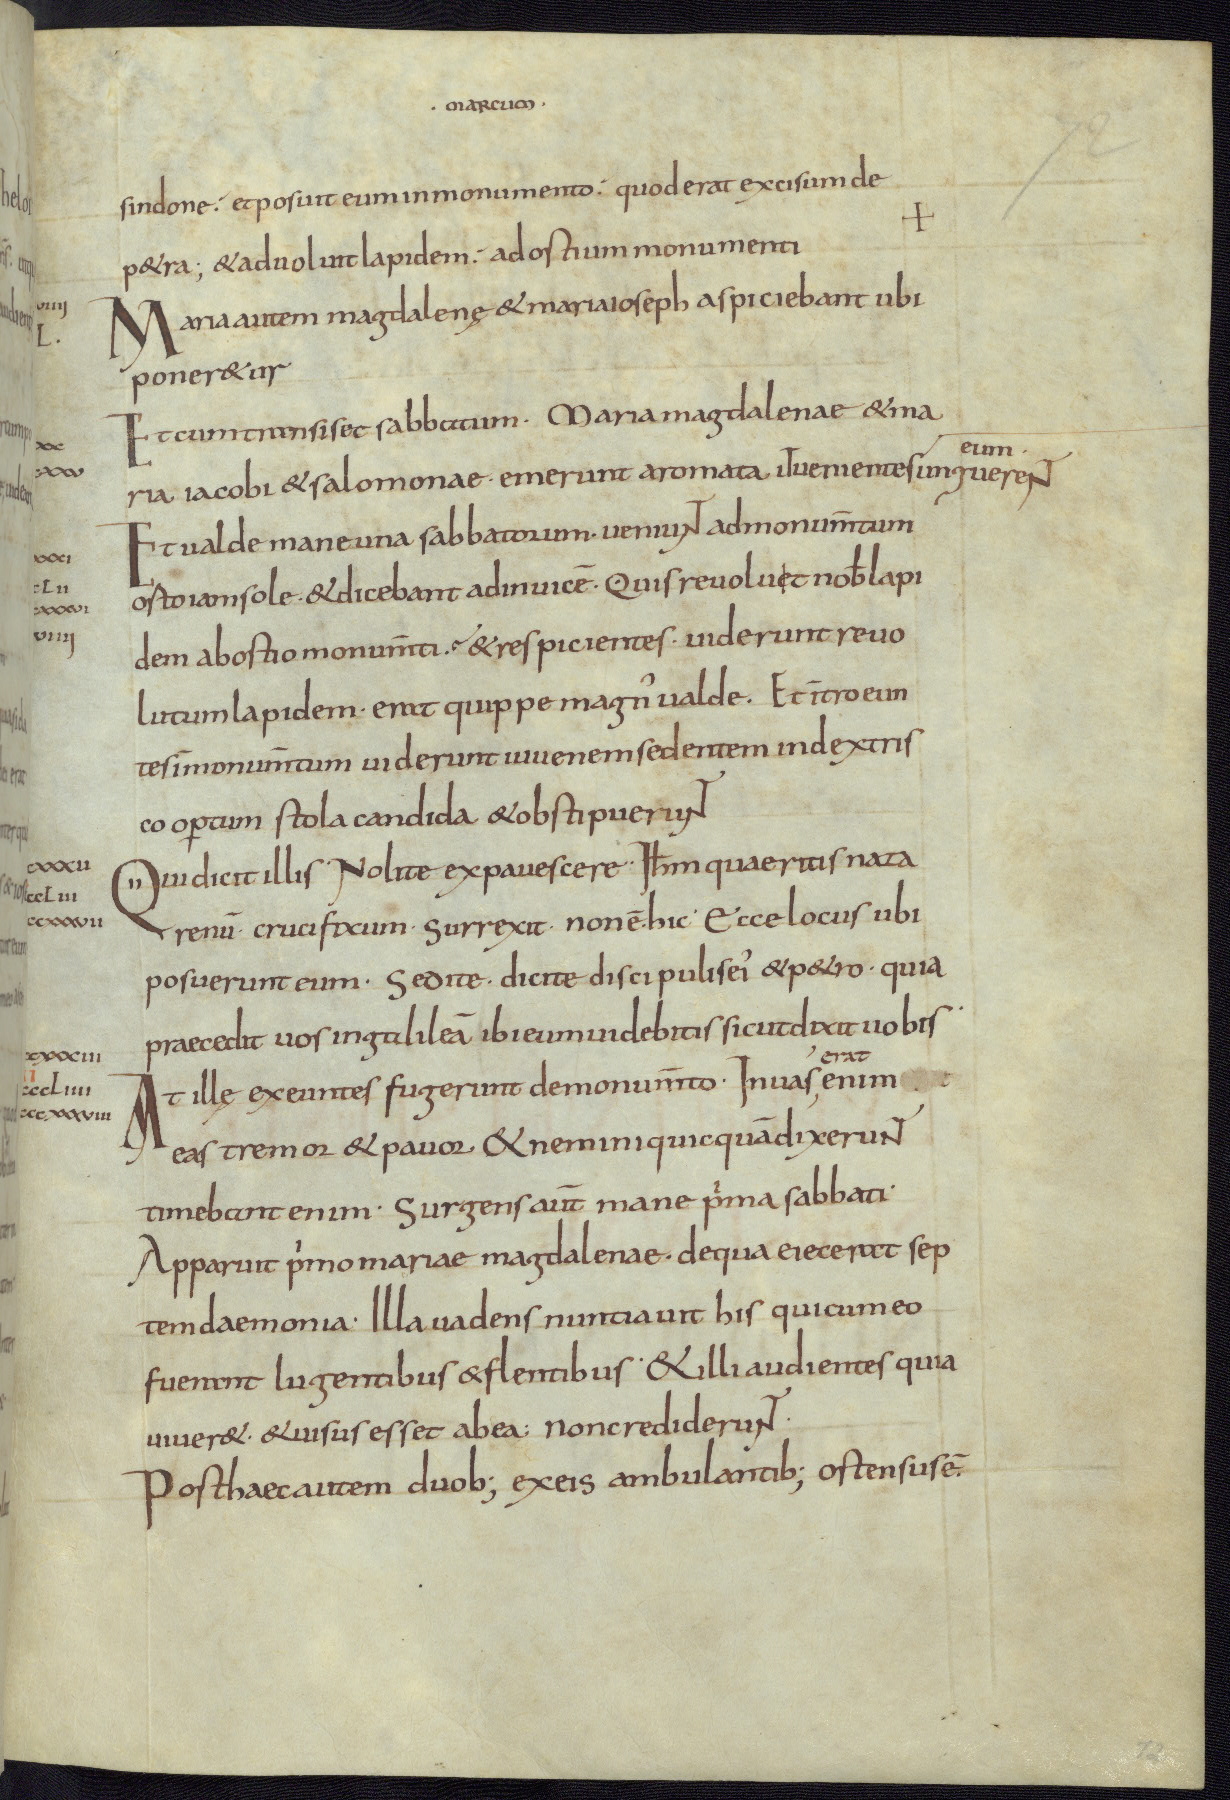 · marcum ·
72
sindone⁊ et posuit eum in monumento⁊ quod erat excisum de
+
p&ra; & aduoluit lapidem⁊ ad ostium monumenti
viiii
L.
Maria autem magdalenę & maria ioseph aspiciebant ubi
poner&ur
Et cum transisset sabbatum · Maria magdalenae & ma
eum ·
ria iacobi & salomonae · emerunt aromata ut uenientes ungueren̄t
Et ualde mane una sabbatorum · ueniun̄t ad monum̄tum
orto iam sole · & dicebant adinuicē · Quis reuoluet nob̄ lapi
dem ab ostio monum̄ti · & respicientes · uiderunt reuo
lutum lapidem · erat quippe magn᾿ ualde · Et ītroeun
tes ī monum̄tum uiderunt iuuenem sedentem in dextris
coopertum stola candida & obstipuerun̄t
Qui dicit illis · Nolite expauescere · Ih̄m quaeritis naza
renū · crucifixum · surrexit · non ē hic · Ecce locus ubi
posuerunt eum · Sed ite · dicite discipulis ei᾿ & p&ro · quia
praecedit uos in galileā ibi eum uidebitis sicut dixit uobis ·
erat
At illę exeuntes fugerunt de monum̄to · Inuas, enim
eas tremor & pauor & nemini quicquā dixerun̄t
timebant enim · Surgens aūt mane p̍ma sabbati ·
Apparuit p̍mo mariae magdalenae · de qua eiecerat sep
tem daemonia · Illa uadens nuntiauit his qui cum eo
fuerant lugentibus & flentibus · & illi audientes quia
uiuer& · & uisus esset ab ea : non crediderun̄t ·
Post haec autem duob; ex eis ambulantib; ostensus ē ·